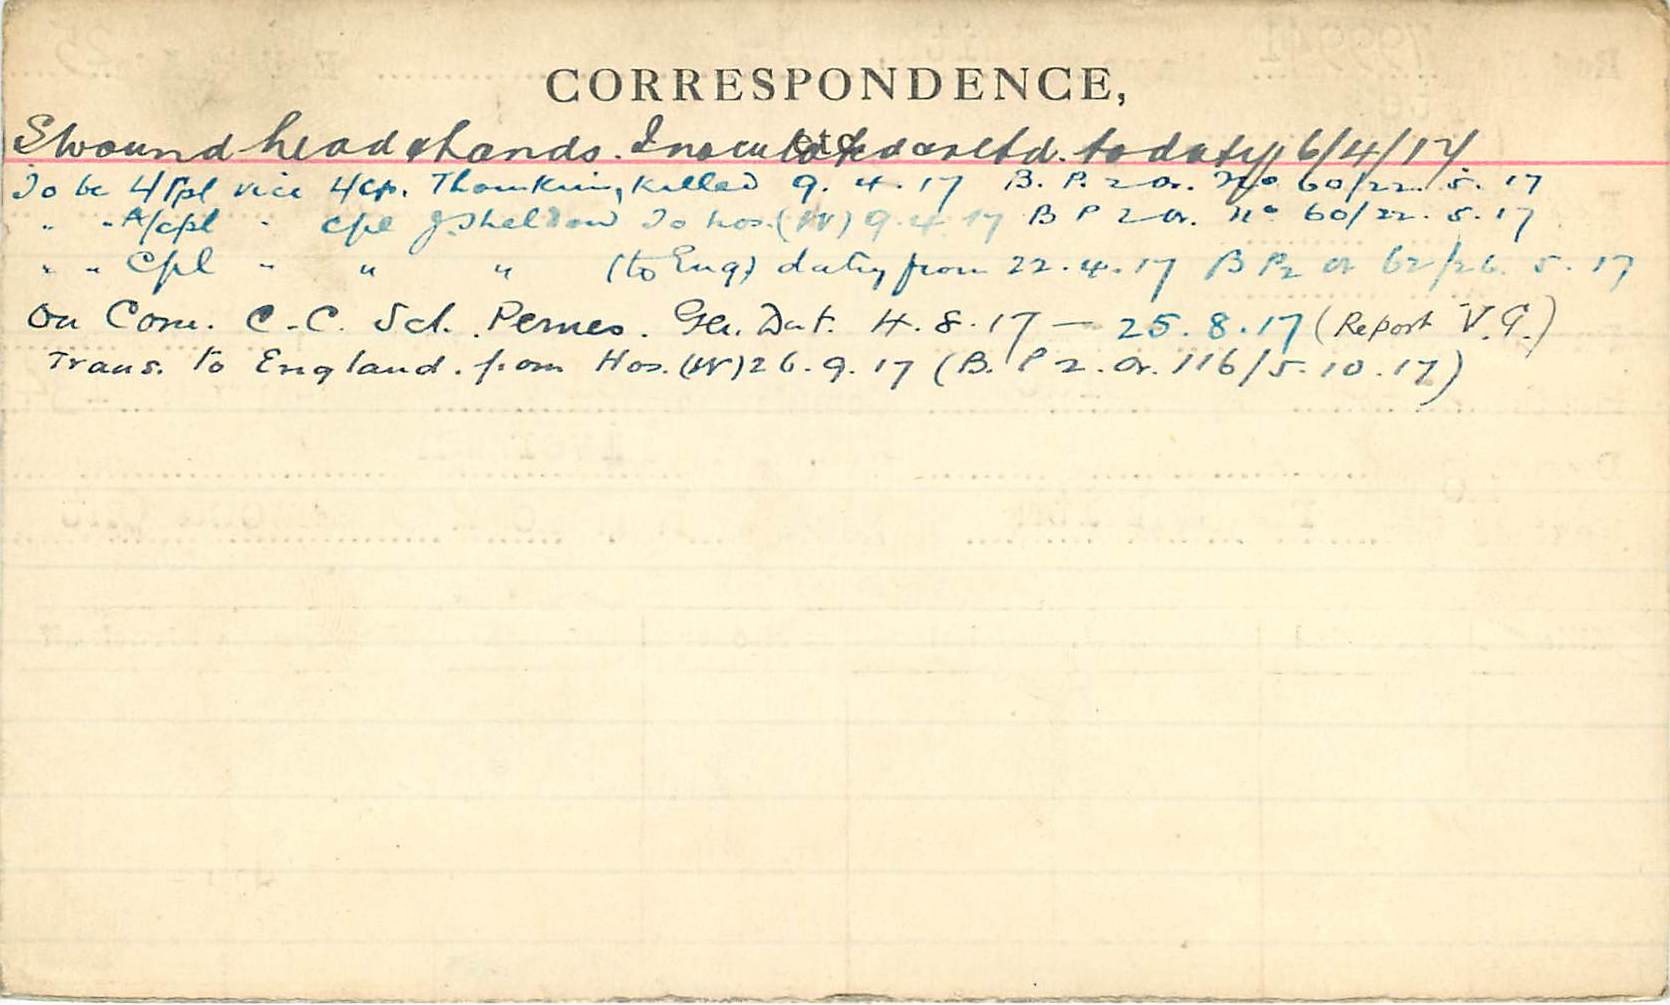 CORRESPONDENCE,
etc
S wound head & hands. Inoculated & retd. to duty 6/4/17
To be L/Cpl vice L/Cp. killed 9.4.17 B.P.2 Or. No 60/22.5.17
" " A/Cpl " Cpl J. Sheldon To hos.(W) 9.4.17 B P 2 Or. No 60/22.5.17
" " Cpl " " " (to Eng) duty from 22.4.17 B P2 Or 62/26.5.17
On Com. C.C. Sch. Pernes. Gen. Dut. 4.8.17 — 25.8.17 (Report V.G.)
Trans. to England. from Hos. (W) 26.9.17 (B.P 2. Or. 116/5.10.17)